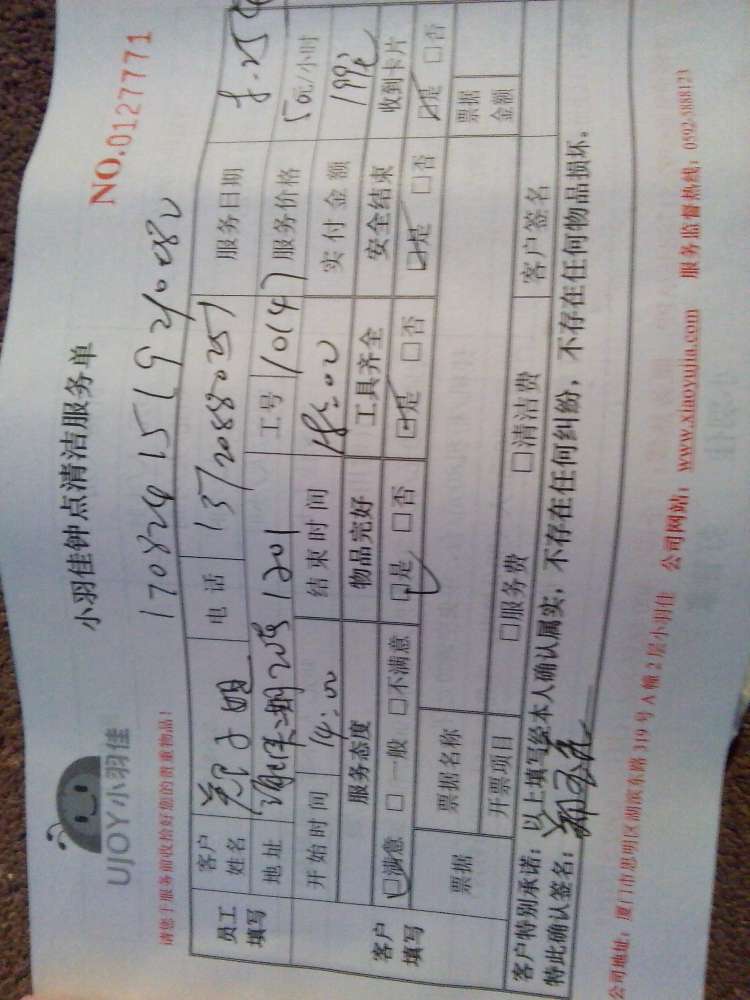 UJOY小羽佳
小羽佳钟点清洁服务单
NO.0127771
请您于服务前收拾好您的贵重物品!
170824151921082
员工填写 客户姓名 电话 13720880251 服务日期 8.25
地址 1201 工号 10147 服务价格 50元/小时
开始时间 14:00 结束时间 18:00 实付金额 199元
客户填写 服务态度 物品完好 工具齐全 安全结束 收到卡片
☑满意 □一般 □不满意 ☑是 □否 ☑是 □否 ☑是 □否 ☑是 □否
票据 票据名称 票据金额
开票项目 □服务费 □清洁费 客户签名
客户特别承诺:以上填写经本人确认属实,不存在任何纠纷,不存在任何物品损坏。
特此确认签名:
公司地址:厦门市思明区湖滨东路319号A幢2层小羽佳 公司网站:www.xiaoyujia.com 服务监督热线:0592-5888123